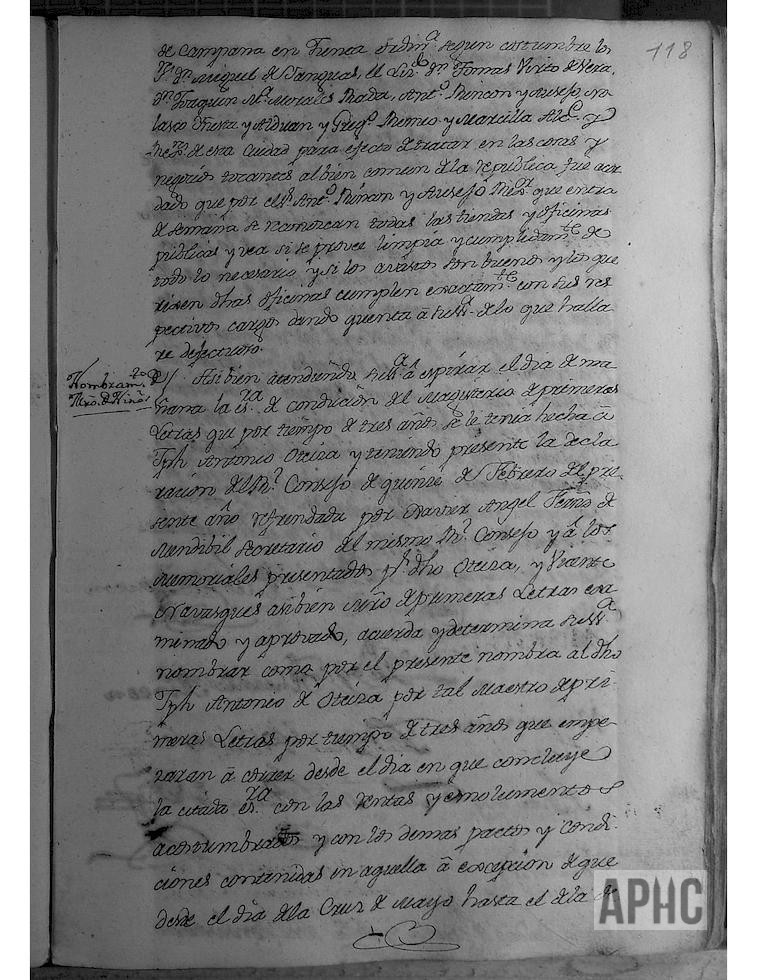 118
de campana en Junta ordin.ª segun costumbre los
S.res d.n Miguel de Yanguas, el Lic.do d.n Tomas Virto de Vera,
d.n Joaquin M.ª Morales Rada, Ant.º Rincon y Ausejo, No
lasco Fresta y Alduan y Greg.º Remeo y Marcilla Alc.e y
Re.res de esta Ciudad para efecto de tratar en las cosas y
negocios tocantes al bien comun de la republica fue acor
dado que por el s.r Ant.º Rincon y Ausejo Re.or que entra
de semana se reconozcan todas las tiendas y oficinas
publicas y vea si se provee limpia y cumplidam.te de
todo lo necesario y si los avastos son buenos y los que
rixen dhas oficinas cumplen exactam.te con sus res
pectivos cargos dando quenta a su S.ª de lo que halla
re defectuoso.
Nombram.to de
Mro. de Niños
Asibien atendiendo su S.ª â espirar el dia de ma
ñana la es.ra de condución del Magisterio de primeras
Letras que por tiempo de tres años se le tenia hecha â
Jph Antonio Oteiza y teniendo presente la decla
racion del R.l Consejo de quince de Febrero del pre
sente año refrendada por Xavier Angel Ferño de
Mendibil secretario del mismo R.l Consejo y â los
Memoriales presentados p.r dho Oteiza, y Vicente
Navasques asibien Mro de primeras Letras exa
minado y aprovado, acuerda y determina su S.ª
nombrar como por el presente nombra al dho
Jph Antonio de Oteiza por tal Maestro de pri-
meras Letras por tiempo de tres años que empe-
zaran â correr desde el dia en que concluye
la citada es.ra con las rentas y emolumentos
acostumbrados y con los demas pactos y condi-
ciones contenidas en aquella â excepcion de que
desde el dia de la Cruz de Mayo hasta el de la de
APHC